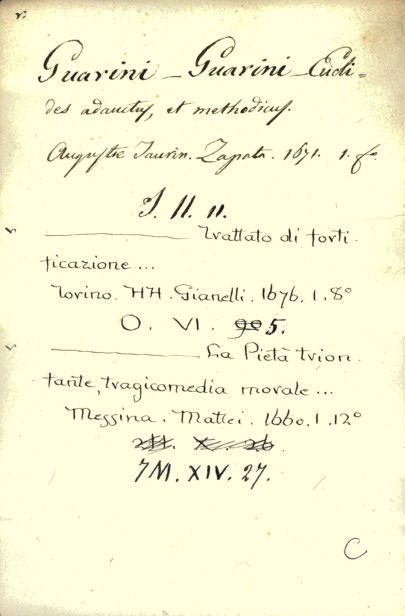 Guarini _ Guarini _ Eucli=
des adauctus, et methodicus.
Augustae Taurin. Zapata. 1671. 1. fº
J. II. 11.
Trattato di forti-
ficazione ...
Torino. HH. Gianelli. 1676. 1. 8º
O. VI. 5.
La Pietà trion-
fante, tragicomedia morale ...
Messina. Mattei. 1660. 1. 12º
7M. XIV. 27.
C